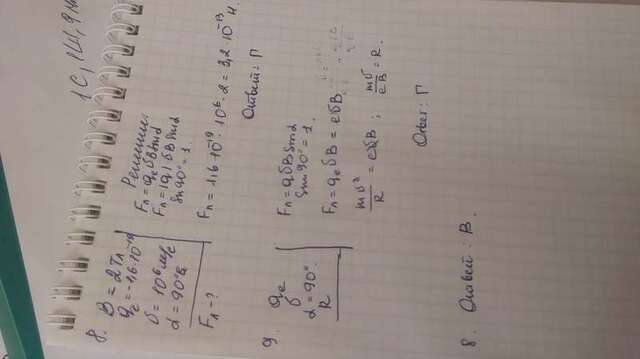 1С, 1Ш, 9
8.
B = 2Тл
qe = -1,6·10⁻¹⁹
υ = 10⁶ м/с
α = 90°
Fл - ?
Решение:
Fл = qe υB sinα
Fл = |q| υB sinα
sin 90° = 1
Fл = 1,6·10⁻¹⁹ · 10⁶ · 2 = 3,2 · 10⁻¹³ н.
Ответ: Г
9.
qe
υ
α = 90°
R
Fл = qυB sinα
sin 90° = 1
Fл = qe υB = eυB
mυ²/R = eυB ; mυ/eB = R.
Ответ: Г
8. Ответ: В.